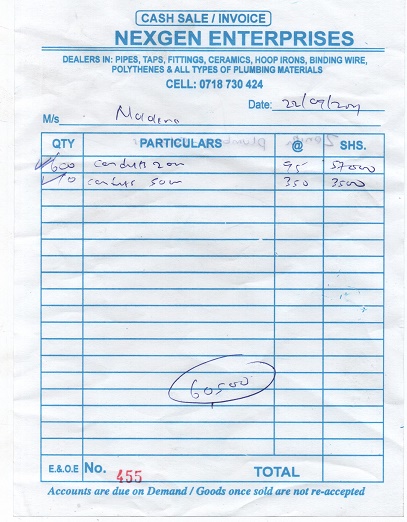 CASH SALE / INVOICE
NEXGEN ENTERPRISES
DEALERS IN: PIPES, TAPS, FITTINGS, CERAMICS, HOOP IRONS, BINDING WIRE,
POLYTHENES & ALL TYPES OF PLUMBING MATERIALS
CELL: 0718 730 424
Date: 22/09/201
M/s
QTY PARTICULARS @ SHS.
600 95 57000
10 350 3500
60500
E.& O.E No. 455 TOTAL
Accounts are due on Demand / Goods once sold are not re-accepted